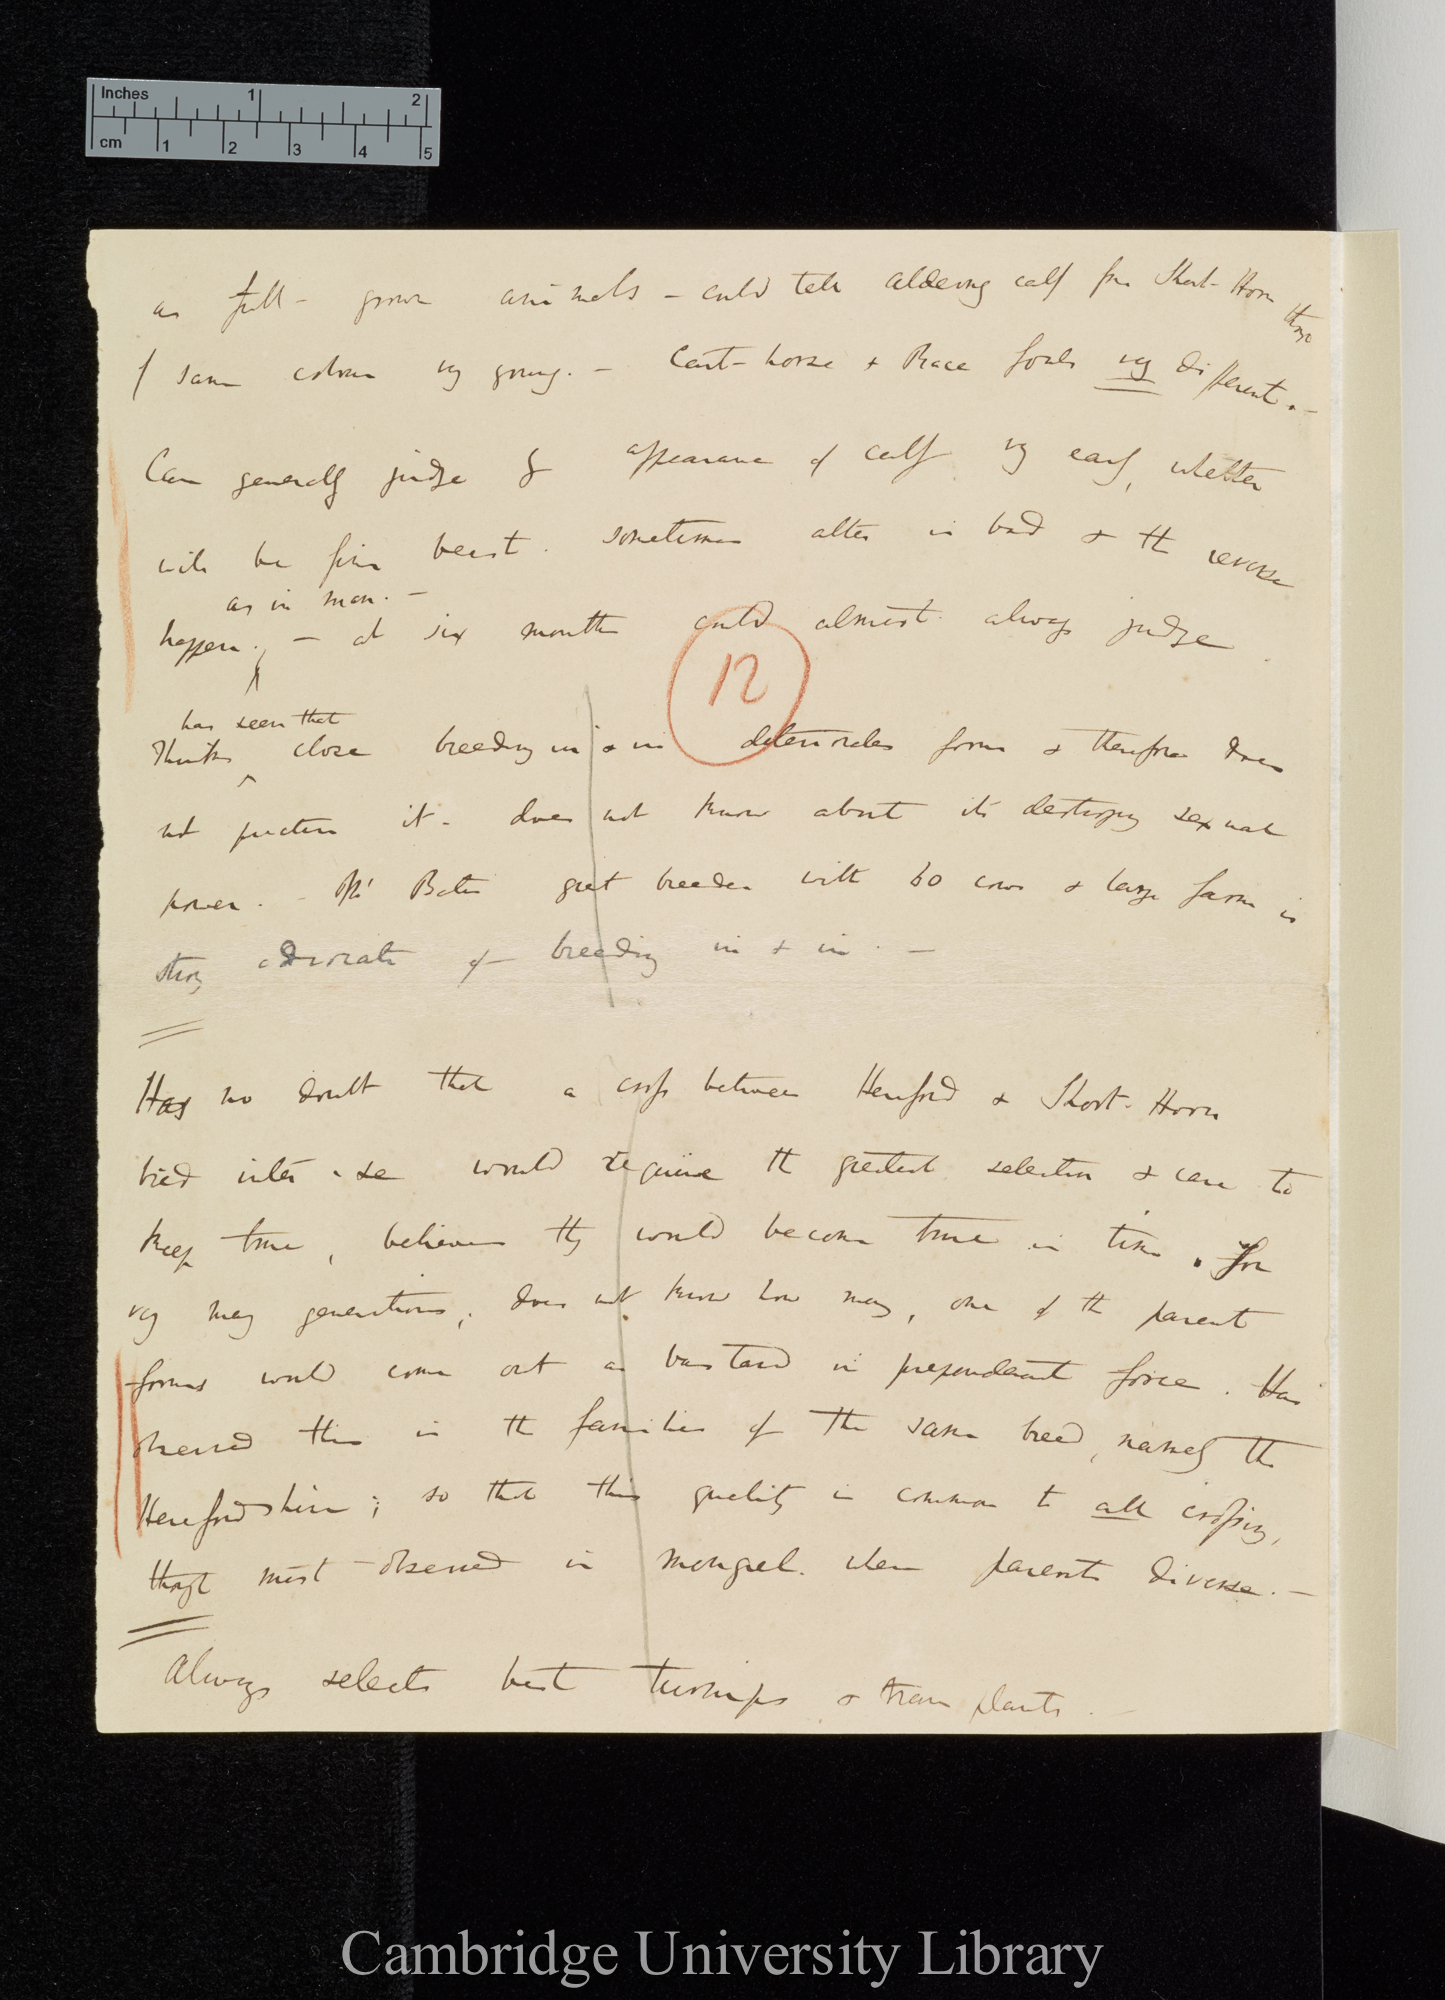 Inches 1 2
cm 1 2 3 4 5
as full-grown animals – could tell Alderney calf from Short-Horn though
of same colour very young. – Cart-horse & Race foals very different. –
Can generally judge by appearance of calf very early, whether
will be fine beast. sometimes alter in bad & the reverse
as in man. –
happen. – at six months could almost always judge
12
has seen that
Thinks close breeding in & in deteriorates form & therefore does
not practice it – does not know about its destroying sexual
power. – Mr Bates great breeder with 60 cows & large farm is
strong advocate of breeding in & in. –
Has no doubt that a cross between Hereford & Short-Horn
bred inter-se would require the greatest selection & care to
keep true, believes they would become true in time. For
very many generations, does not know how many, one of the parent
forms would come out as bastard in preponderant force. Has
observed this in the families of the same breed, namely the
Herefordshire; so that this quality is common to all crossing,
though most observed in mongrel when parents diverse. –
Always selects best turnips & transplants. –
Cambridge University Library